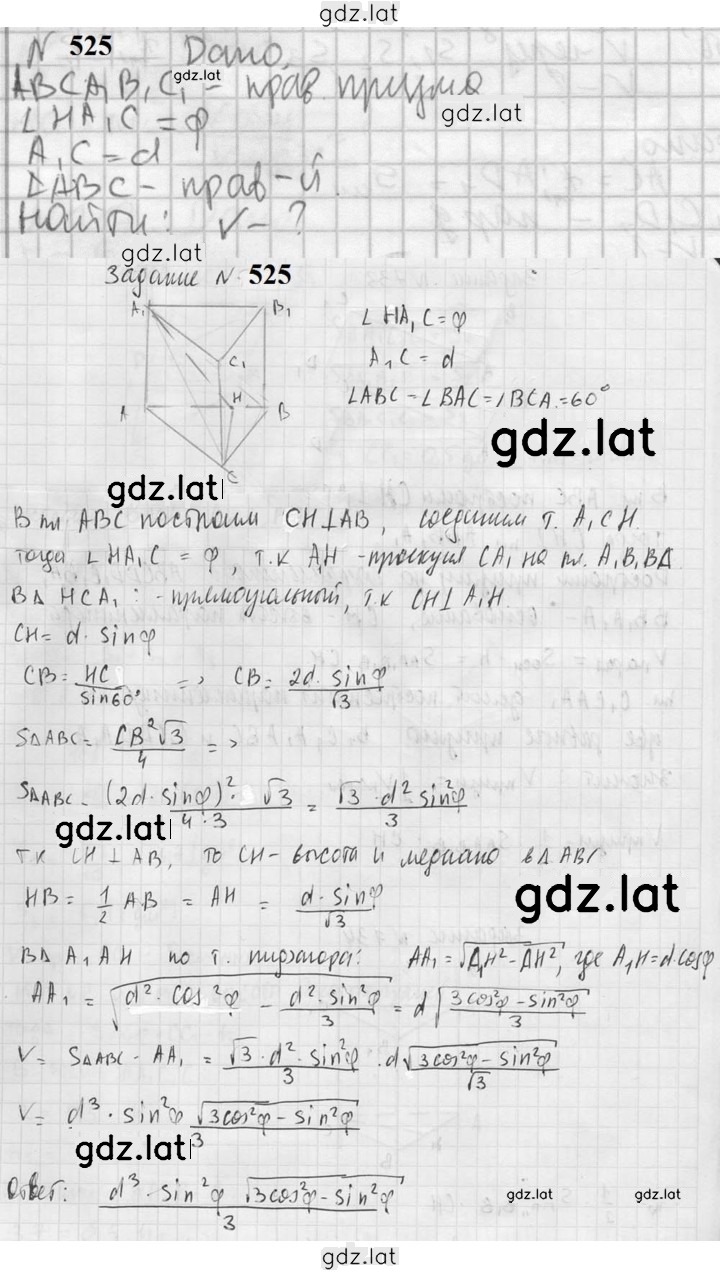 gdz.lat
N 525 Дано,
ABCA₁B₁C₁ - прав призма
gdz.lat
∠HA₁C = φ
gdz.lat
A₁C = d
ΔABC - прав-й.
Найти: V - ?
gdz.lat
Задание N 525
A₁ B₁
C₁
H
A B
C
∠HA₁C = φ
A₁C = d
∠ABC = ∠BAC = ∠BCA = 60°
gdz.lat
gdz.lat
В пл ABC построим CH⊥AB, соединим т. A₁CH.
тогда ∠HA₁C = φ, т.к A₁H - проекция CA₁ на пл. A₁B₁BA
В Δ HCA₁: - прямоугольный, т.к CH⊥A₁H.
CH = d · sinφ
CB = HC / sin60° => CB = 2d · sinφ / √3
SΔABC = CB²√3 / 4 =>
SΔABC = (2d · sinφ)² · √3 / 4 · 3 = √3 · d² sin²φ / 3
gdz.lat
т.к CH ⊥ AB, то CH - высота и медиана в Δ ABC
HB = 1/2 AB = AH = d · sinφ / √3
gdz.lat
В Δ A₁AH по т. пифагора: AA₁ = √A₁H² - AH², где A₁H = d cosφ
AA₁ = √d² · cos²φ - d² · sin²φ / 3 = d √3cos²φ - sin²φ / 3
V = SΔABC · AA₁ = √3 · d² · sin²φ / 3 · d √3cos²φ - sin²φ / √3
V = d³ · sin²φ √3cos²φ - sin²φ / 3
gdz.lat
Ответ: d³ · sin²φ √3cos²φ - sin²φ / 3
gdz.lat gdz.lat
gdz.lat